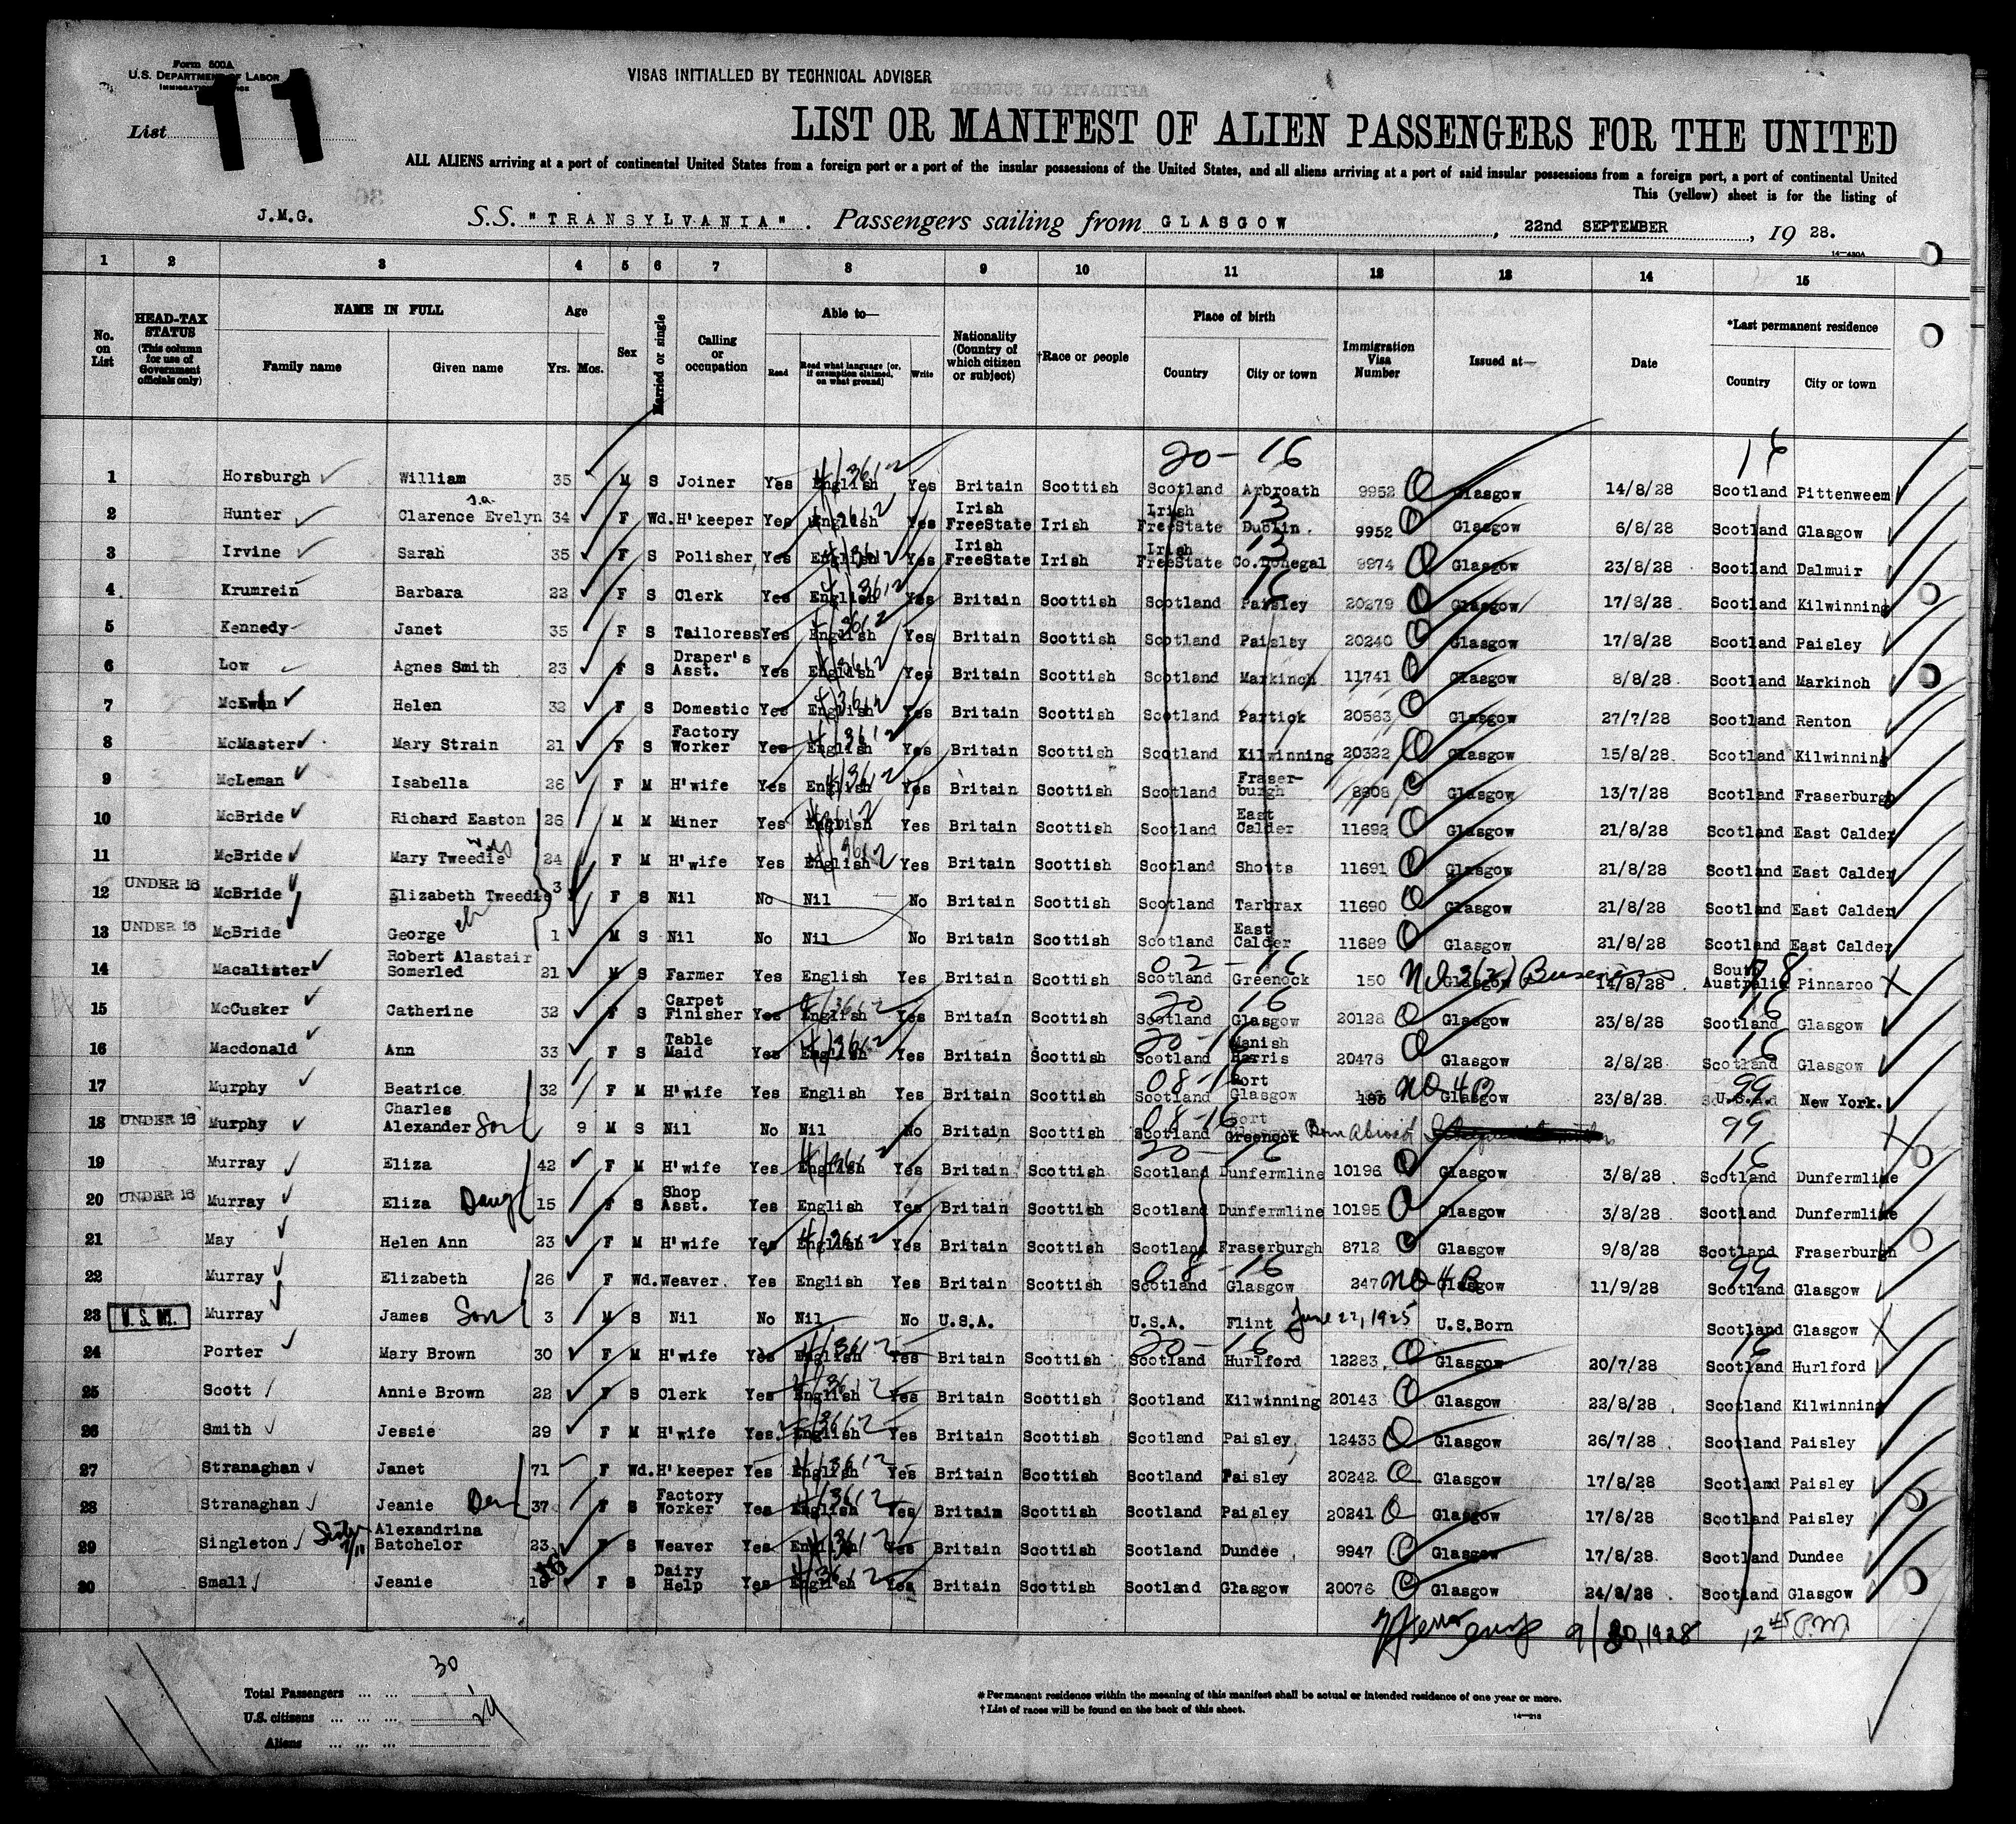 Form 500A
U.S. DEPARTMENT OF LABOR
IMMIGRATION
11
List
VISAS INITIALLED BY TECHNICAL ADVISER
LIST OR MANIFEST OF ALIEN PASSENGERS FOR THE UNITED
ALL ALIENS arriving at a port of continental United States from a foreign port or a port of the insular possessions of the United States, and all aliens arriving at a port of said insular possessions from a foreign port, a port of continental United
This (yellow) sheet is for the listing of
J.M.G. S.S. "TRANSYLVANIA". Passengers sailing from GLASGOW, 22nd SEPTEMBER, 19 28.
14—480A
1 2 3 4 5 6 7 8 9 10 11 12 13 14 15
No. on List HEAD-TAX STATUS (This column for use of Government officials only) NAME IN FULL Family name Given name Age Yrs. Mos. Sex Married or single Calling or occupation Able to— Read Read what language (or, if exemption claimed, on what ground) Write Nationality (Country of which citizen or subject) †Race or people Place of birth Country City or town Immigration Visa Number Issued at— Date *Last permanent residence Country City or town
20-16 16
1 Horsburgh William 35 M S Joiner Yes English Yes Britain Scottish Scotland Arbroath 9952 Glasgow 14/8/28 Scotland Pittenweem
2 Hunter Clarence Evelyn 34 F Wd. H'keeper Yes English Yes Irish FreeState Irish Irish FreeState Dublin. 13 9952 Glasgow 6/8/28 Scotland Glasgow
3 Irvine Sarah 35 F S Polisher Yes English Yes Irish FreeState Irish Irish FreeState Co.Donegal 13 9974 Glasgow 23/8/28 Scotland Dalmuir
4 Krumrein Barbara 22 F S Clerk Yes English Yes Britain Scottish Scotland Paisley 16 20279 Glasgow 17/8/28 Scotland Kilwinning
5 Kennedy Janet 35 F S Tailoress Yes English Yes Britain Scottish Scotland Paisley 20240 Glasgow 17/8/28 Scotland Paisley
6 Low Agnes Smith 23 F S Draper's Asst. Yes English Yes Britain Scottish Scotland Markinch 11741 Glasgow 8/8/28 Scotland Markinch
7 McEwan Helen 32 F S Domestic Yes English Yes Britain Scottish Scotland Partick 20563 Glasgow 27/7/28 Scotland Renton
8 McMaster Mary Strain 21 F S Factory Worker Yes English Yes Britain Scottish Scotland Kilwinning 20322 Glasgow 15/8/28 Scotland Kilwinning
9 McLeman Isabella 26 F M H'wife Yes English Yes Britain Scottish Scotland Fraser-burgh Glasgow 13/7/28 Scotland Fraserburgh
10 McBride Richard Easton 26 M M Miner Yes English Yes Britain Scottish Scotland East Calder 11692 Glasgow 21/8/28 Scotland East Calder
11 McBride Mary Tweedie 24 F M H'wife Yes English Yes Britain Scottish Scotland Shotts 11691 Glasgow 21/8/28 Scotland East Calder
12 UNDER 16 McBride Elizabeth Tweedie 3 F S Nil No Nil No Britain Scottish Scotland Tarbrax 11690 Glasgow 21/8/28 Scotland East Calder
13 UNDER 16 McBride George 1 M S Nil No Nil No Britain Scottish Scotland East Calder 11689 Glasgow 21/8/28 Scotland East Calder
14 Macalister Robert Alastair Somerled 21 M S Farmer Yes English Yes Britain Scottish 02-16 Scotland Greenock 150 Glasgow 3(2) Business 14/8/28 South Australia Pinnaroo
15 McCusker Catherine 32 F S Carpet Finisher Yes English Yes Britain Scottish 20 16 Scotland Glasgow 20128 Glasgow 23/8/28 16 Scotland Glasgow
16 Macdonald Ann 33 F S Table Maid Yes English Yes Britain Scottish 20-16 Scotland Manish Harris 20478 Glasgow 2/8/28 16 Scotland Glasgow
17 Murphy Beatrice 32 F M H'wife Yes English Yes Britain Scottish 08-16 Scotland Port Glasgow NO 4B Glasgow 23/8/28 99 U.S.A. New York.
18 UNDER 16 Murphy Charles Alexander Son 9 M S Nil No Nil No Britain Scottish 08-16 Scotland Port Greenock Born Abroad 99
19 Murray Eliza 42 F M H'wife Yes English Yes Britain Scottish 20-16 Scotland Dunfermline 10196 Glasgow 3/8/28 16 Scotland Dunfermline
20 UNDER 16 Murray Eliza Daug 15 F S Shop Asst. Yes English Yes Britain Scottish Scotland Dunfermline 10195 Glasgow 3/8/28 Scotland Dunfermline
21 May Helen Ann 23 F M H'wife Yes English Yes Britain Scottish Scotland Fraserburgh 8712 Glasgow 9/8/28 Scotland Fraserburgh
22 Murray Elizabeth 26 F Wd. Weaver. Yes English Yes Britain Scottish 08-16 Scotland Glasgow 247 NO 4B Glasgow 11/9/28 99 Scotland Glasgow
23 Murray James Son 3 M S Nil No Nil No U.S.A. U.S.A. Flint June 22, 1925 U.S.Born Scotland Glasgow
24 Porter Mary Brown 30 F M H'wife Yes English Yes Britain Scottish 20-16 Scotland Hurlford 12283 Glasgow 20/7/28 16 Scotland Hurlford
25 Scott Annie Brown 22 F S Clerk Yes English Yes Britain Scottish Scotland Kilwinning 20143 Glasgow 22/8/28 Scotland Kilwinning
26 Smith Jessie 29 F M H'wife Yes English Yes Britain Scottish Scotland Paisley 12433 Glasgow 26/7/28 Scotland Paisley
27 Stranaghan Janet 71 F Wd. H'keeper Yes English Yes Britain Scottish Scotland Paisley 20242 Glasgow 17/8/28 Scotland Paisley
28 Stranaghan Jeanie 37 F S Factory Worker Yes English Yes Britain Scottish Scotland Paisley 20241 Glasgow 17/8/28 Scotland Paisley
29 Singleton Alexandrina Batchelor 23 F S Weaver Yes English Yes Britain Scottish Scotland Dundee 9947 Glasgow 17/8/28. Scotland Dundee
30 Small Jeanie F S Dairy Help Yes English Yes Britain Scottish Scotland Glasgow 20076 Glasgow 24/8/28 Scotland Glasgow
9/30, 1928 12 45 P.M
30
Total Passengers ... ...
U.S. citizens ... ... ...
Aliens ... ... ...
* Permanent residence within the meaning of this manifest shall be actual or intended residence of one year or more.
† List of races will be found on the back of this sheet.
14—218